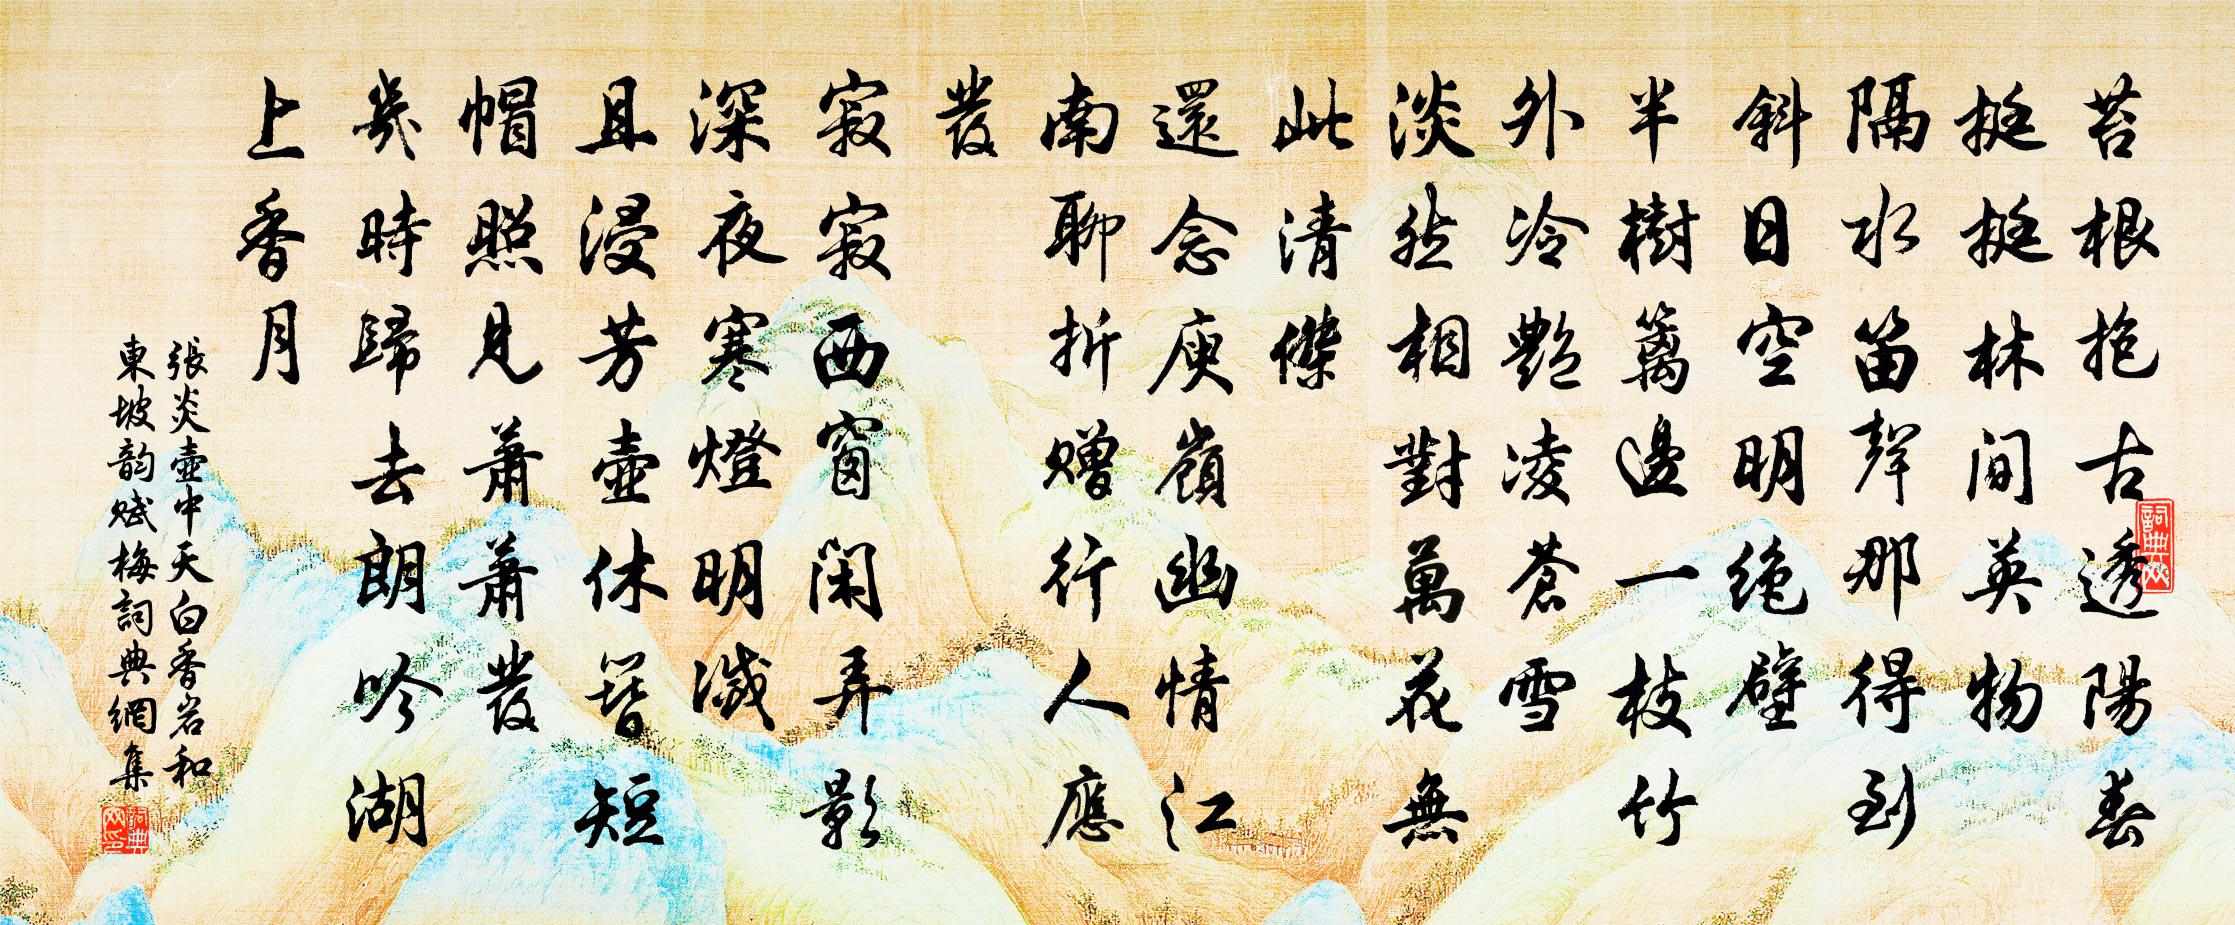 苔根抱古透陽春
挺挺林间英物
隔水笛聲那得到
斜日空明绝壁
半樹篱邊一枝竹
外冷艷凌蒼雪
淡然相對萬花無
此清傑
還念庾嶺幽情江
南聊折贈行人應
發
寂寂西窗闲弄影
深夜寒燈明滅
且浸芳壺休簪短
帽照見蕭蕭發
幾時歸去朗吟湖
上香月
張炎壺中天白香岩和
東坡韵赋梅詞典網集
詞典网
詞典网印